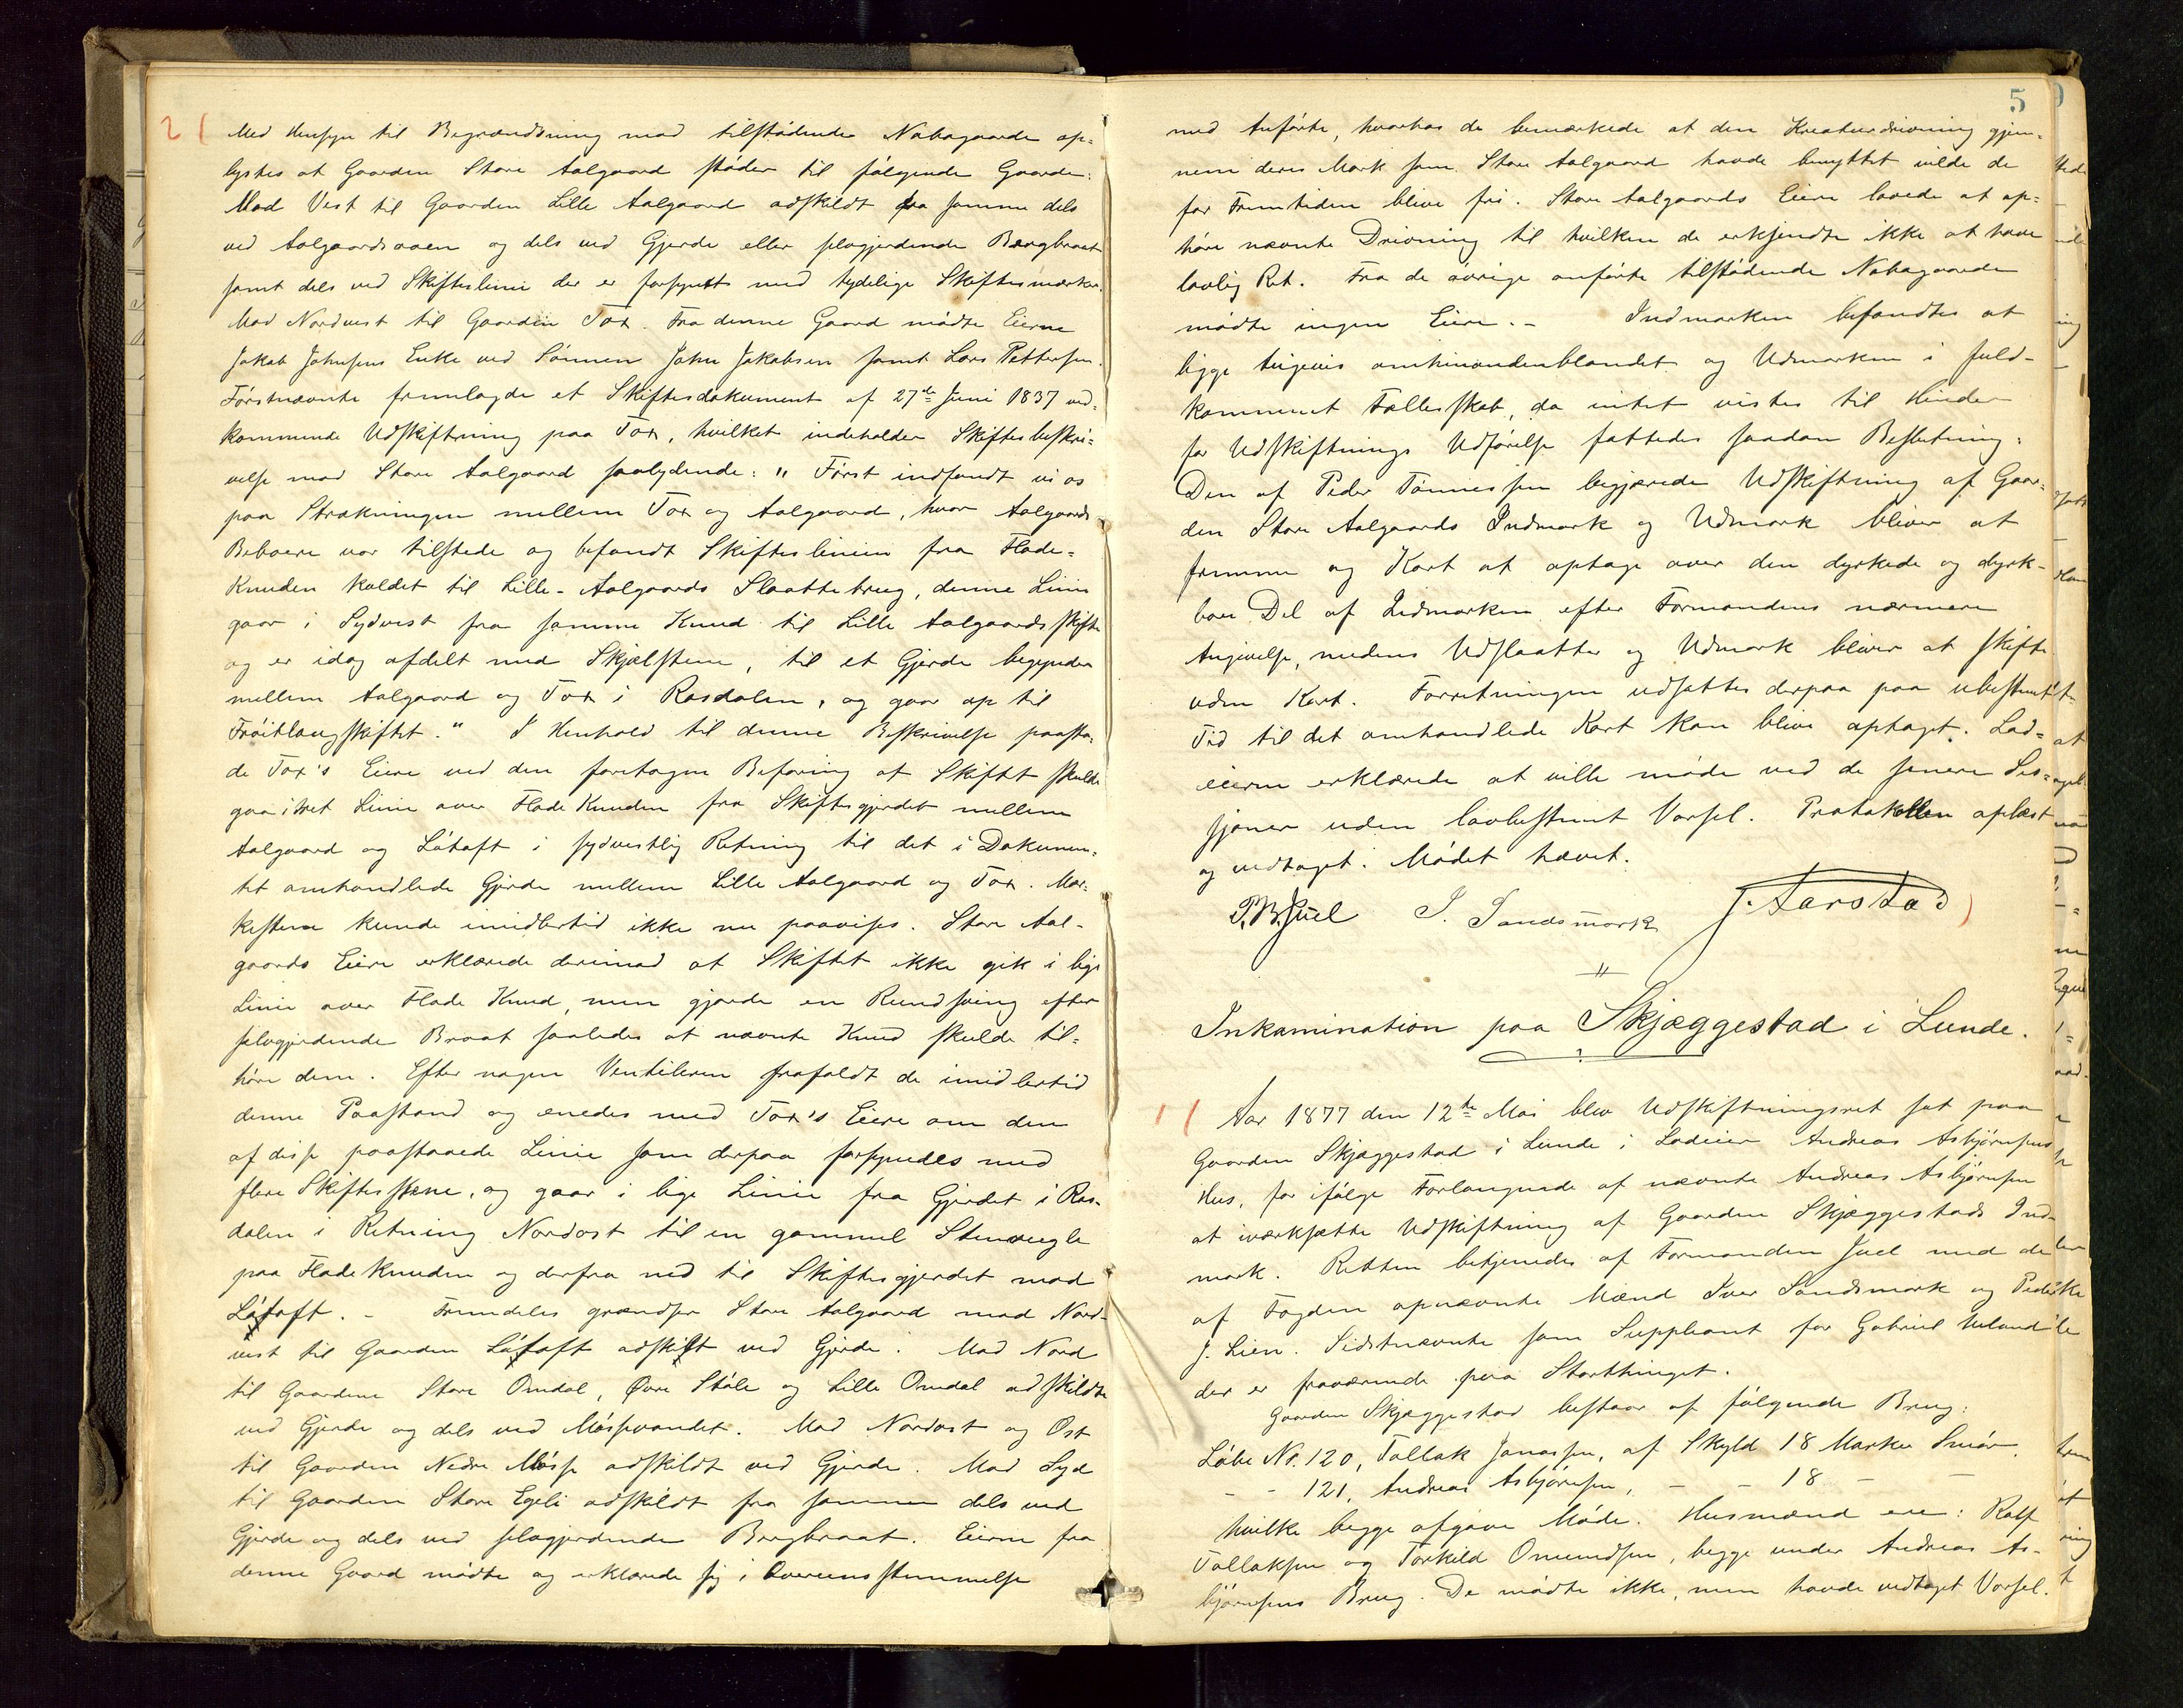 2 (
Med Hensyn til Begrændsning mod tilstødende Nabogaarde op=
lystes at Gaarden Store Aalgaard støder til følgende Gaarde:
Mod Vest til Gaarden Lille Aalgaard adskildt fra samme dels
ved Aalgaardsaaen og dels ved Gjerde eller selvgjerdende Bergbraat
samt dels ved Skifteslinie der er forsynet med tydelige Skiftesmærker.
Mod Nordvest til Gaarden Tox. Fra denne Gaard mødte Eierne
Jakob Johnsens Enke ved Sønnen John Jakobsen samt Lars Pettersen.
Førstnævnte fremlagde et Skiftesdokument af 27de Juni 1837 ved=
kommende Udskiftning paa Tox, hvilket indeholder Skiftesbeskri=
velse mod Store Aalgaard saalydende: " Først indfandt vi os
paa Strækningen mellem Tox og Aalgaard, hvor Aalgaards
Beboere var tilstede og befandt Skifteslinien fra Flade=
Knuden kaldet til Lille-Aalgaards Slaattebrug, denne Linie
gaar i Sydvest fra samme Knud til Lille Aalgaards skifte
og er idag afdelt med Skjælstene, til et Gjerde begynder
mellem Aalgaard og Tox i Rasdalen, og gaar op til
Frøitlangskiftet." I Henhold til denne Beskrivelse paasto=
de Tox's Eiere ved den foretagne Befaring at Skiftet skulde
gaa i ret Linie over Flade Knuden fra Skiftesgjerdet mellem
Aalgaard og Løtoft i sydvestlig Retning til det i Dokumen=
tet omhandlede Gjerde mellem Lille Aalgaard og Tox. Mær=
kestene kunde imidlertid ikke nu paavises. Store Aal-
gaards Eiere erklærede derimod at Skiftet ikke gik i lige
Linie over Flade Knud, men gjorde en Rundsving efter
selvgjerdende Braat saaledes at nævnte Knud skulde til=
høre dem. Efter nogen Ventileren frafaldt de imidlertid
denne Paastand og enedes med Tox's Eiere om den
af disse paastaaede Linie som derpaa forsynedes med
flere Skiftesstene, og gaar i lige Linie fra Gjerdet i Ras-
dalen i Retning Nordost til en gammel Stenvegle
paa Flade Knuden og derfra ned til Skiftesgjerdet mod
Løtoft. - Fremdeles grændser Store Aalgaard mod Nord-
vest til Gaarden Løtoft adskilt ved Gjerde. Mod Nord
til Gaardene Store Omdal, Øvre Støle og Lille Omdal adskildte
ved Gjerde og dels ved Møssevandet. Mod Nordost og Ost
til Gaarden Nedre Møsse adskildt ved Gjerde. Mod Syd
til Gaarden Store Egeli adskildt fra samme dels ved
Gjerde og dels ved selvgjerdende Bergbraat. Eierne fra
denne Gaard mødte og erklærede sig i Overensstemmelse
5
med Anførte, hvorhos de bemærkede at den Kreaturdrivning gjen=
nem deres Mark som Store Aalgaard havde benyttet vilde de
for Fremtiden blive fri. Store Aalgaards Eiere lovede at op=
høre nævnte Drivning til hvilken de erkjendte ikke at have
lovlig Ret. Fra de øvrige anførte tilstødende Nabogaarde
mødte ingen Eiere. - Indmarken befandtes at
ligge teigevis omhinandenblandet og Udmarken i fuld-
kommet Fællesskab, da intet vistes til Hinder
for Udskiftnings Udførelse fattedes saadan Beslutning:
Den af Peder Tønnessen begjærede Udskiftning af Gaar=
den Store Aalgaards Indmark og Udmark bliver at
fremme og Kart at optage over den dyrkede og dyrk-
bare Del af Indmarken efter Formandens nærmere
Angivelse, medens Udslaatter og Udmark bliver at skifte
uden Kart. Forretningen udsattes derpaa paa ubestemt
Tid til det omhandlede Kart kan blive optaget. Lod=
eierne erklærede at ville møde ved de senere Ses=
sjoner uden lovbestemt Varsel. Protokollen oplæst
og vedtaget. Mødet hævet.
P.B. Juel I. Sandsmark J. Aarstad )
"
Inkamination paa Skjæggestad i Lunde.
1 ( Aar 1877 den 12te Mai blev Udskiftningsret sat paa
Gaarden Skjæggestad i Lunde i Lodeier Andreas Asbjørnsens
Hus, for ifølge Forlangende af nævnte Andreas Asbjørnsen
at iværksætte Udskiftning af Gaarden Skjæggestads Ind-
mark. Retten betjenedes af Formanden Juel med de
af Fogden opnævnte Mænd Iver Sandsmark og Peder
J. Lien. Sidstnævnte som Suppleant for Gabriel Ueland
der er fraværende paa Storthinget.
Gaarden Skjæggestad bestaar af følgende Brug:
Løbe Nr. 120, Tollak Jonassen, af Skyld 18 Marker Smør.
- - 121, Andreas Asbjørnsen, - - 18 - -
hvilke begge afgave Møde. Husmænd ere: Rolf
Tollaksen og Torkild Omundsen, begge under Andreas As-
bjørnsens Brug. De mødte ikke, men havde vedtaget Varsel.